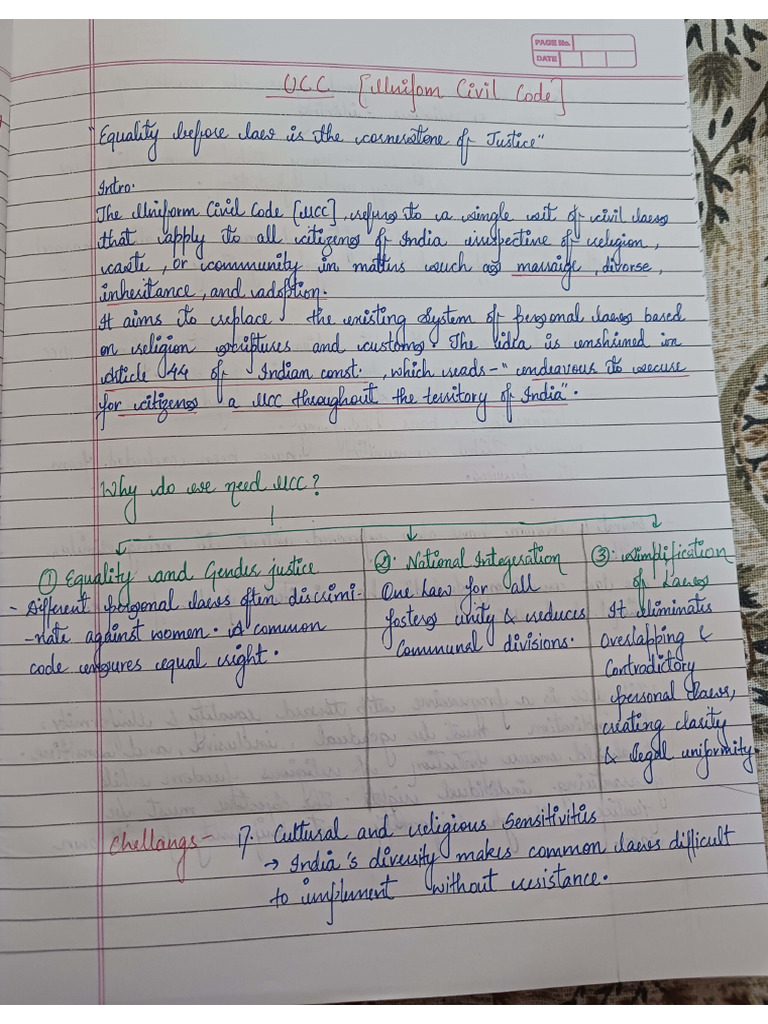 PAGE No.
DATE
UCC [Uniform Civil Code]
"Equality before law is the cornerstone of Justice"
Intro.
The Uniform Civil Code [UCC], refers to a single set of civil laws
that apply to all citizens of India irrespective of religion,
caste, or community in matters such as marraige, divorse,
inheritance, and adoption.
It aims to replace the existing system of personal laws based
on religion scriptures and customs. The idea is enshrined in
Article 44 of Indian const., which reads-"endeavous to secure
for citizens a UCC throughout the territory of India".
Why do we need UCC?
① Equality and Gender justice
- Different personal laws often discrimi-
-nate against women. A common
code ensures equal right.
②. National Integeration
One Law for all
fosters unity & reduces
Communal divisions.
③. Simplification
of Laws
It eliminates
overlapping &
Contradictory
personal laws,
creating clarity
& legal uniformity
Challangs- 1). Cultural and religious Sensitivities
→ India's diversity makes common laws difficult
to implement without resistance.